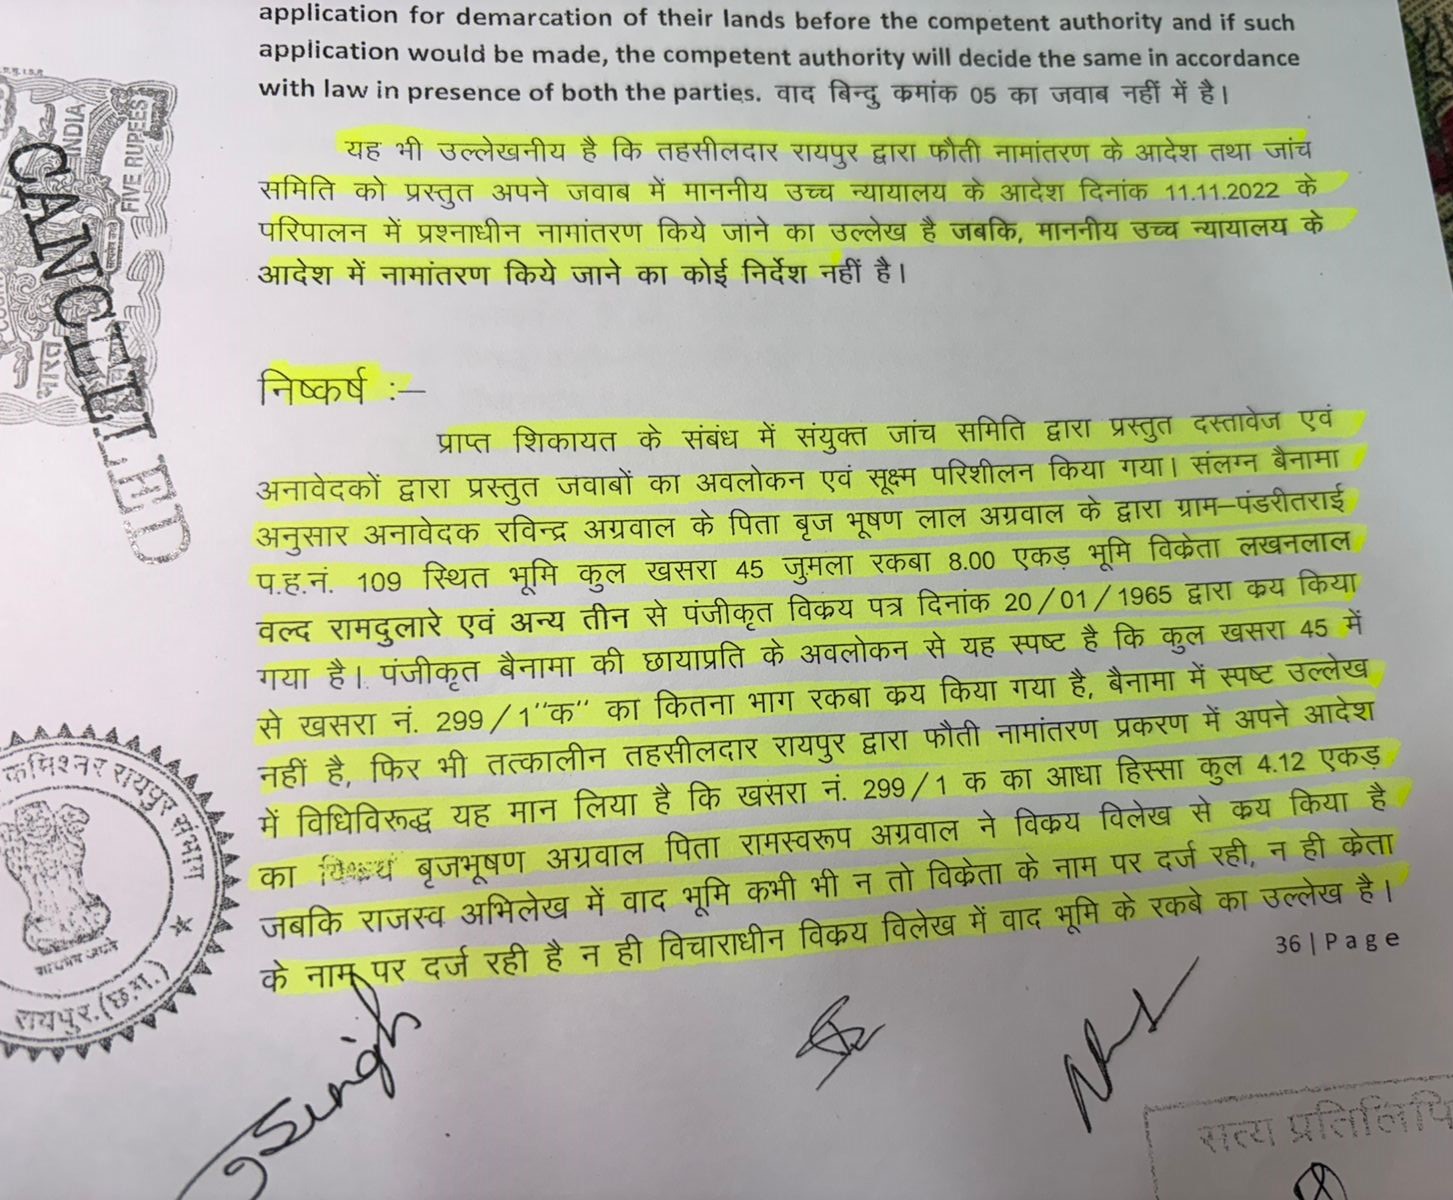 application for demarcation of their lands before the competent authority and if such
application would be made, the competent authority will decide the same in accordance
with law in presence of both the parties. वाद बिन्दु कमांक 05 का जवाब नहीं में है।
यह भी उल्लेखनीय है कि तहसीलदार रायपुर द्वारा फौती नामांतरण के आदेश तथा जांच
समिति को प्रस्तुत अपने जवाब में माननीय उच्च न्यायालय के आदेश दिनांक 11.11.2022 के
परिपालन में प्रश्नाधीन नामांतरण किये जाने का उल्लेख है जबकि, माननीय उच्च न्यायालय के
आदेश में नामांतरण किये जाने का कोई निर्देश नहीं है।
निष्कर्ष :–
प्राप्त शिकायत के संबंध में संयुक्त जांच समिति द्वारा प्रस्तुत दस्तावेज एवं
अनावेदकों द्वारा प्रस्तुत जवाबों का अवलोकन एवं सूक्ष्म परिशीलन किया गया। संलग्न बैनामा
अनुसार अनावेदक रविन्द्र अग्रवाल के पिता बृज भूषण लाल अग्रवाल के द्वारा ग्राम–पंडरीतराई
प.ह.नं. 109 स्थित भूमि कुल खसरा 45 जुमला रकबा 8.00 एकड़ भूमि विकेता लखनलाल
वल्द रामदुलारे एवं अन्य तीन से पंजीकृत विकय पत्र दिनांक 20/01/1965 द्वारा कय किया
गया है। पंजीकृत बैनामा की छायाप्रति के अवलोकन से यह स्पष्ट है कि कुल खसरा 45 में
से खसरा नं. 299/1''क'' का कितना भाग रकबा कय किया गया है, बैनामा में स्पष्ट उल्लेख
नहीं है, फिर भी तत्कालीन तहसीलदार रायपुर द्वारा फौती नामांतरण प्रकरण में अपने आदेश
में विधिविरूद्ध यह मान लिया है कि खसरा नं. 299/1 क का आधा हिस्सा कुल 4.12 एकड़
का बृजभूषण अग्रवाल पिता रामस्वरूप अग्रवाल ने विकय विलेख से कय किया है
जबकि राजस्व अभिलेख में वाद भूमि कभी भी न तो विकेता के नाम पर दर्ज रही, न ही केता
के नाम पर दर्ज रही है न ही विचाराधीन विकय विलेख में वाद भूमि के रकबे का उल्लेख है।
36 | P a g e
CANCELLED
INDIA
FIVE RUPEES
भारत
कमिश्नर रायपुर संभाग
रायपुर.(छ.ग.)
Singh
सत्य प्रतिलिपि